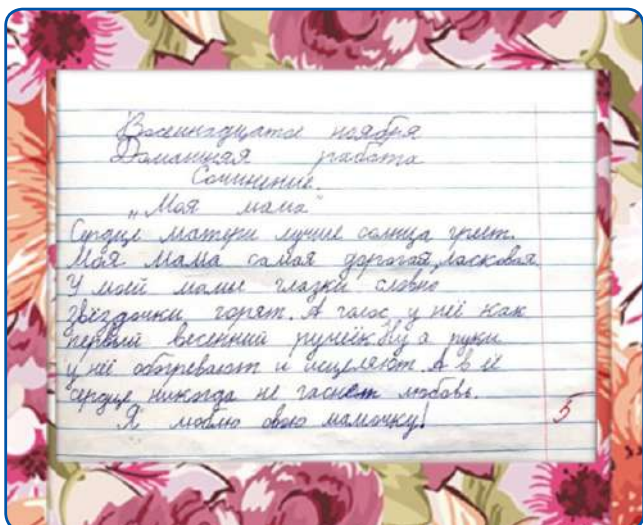 Восемнадцатое ноября
Домашняя работа
Сочинение.
„Моя мама"
Сердце матери лучше солнца греет.
Моя мама самая дорогая, ласковая.
У моей мамы глазки словно
звёздочки горят. А голос у неё как
первый весенний ручеёк. Ну а руки
у неё обогревают и исцеляют. А в её
сердце никогда не гаснет любовь.
Я люблю свою мамочку!
5